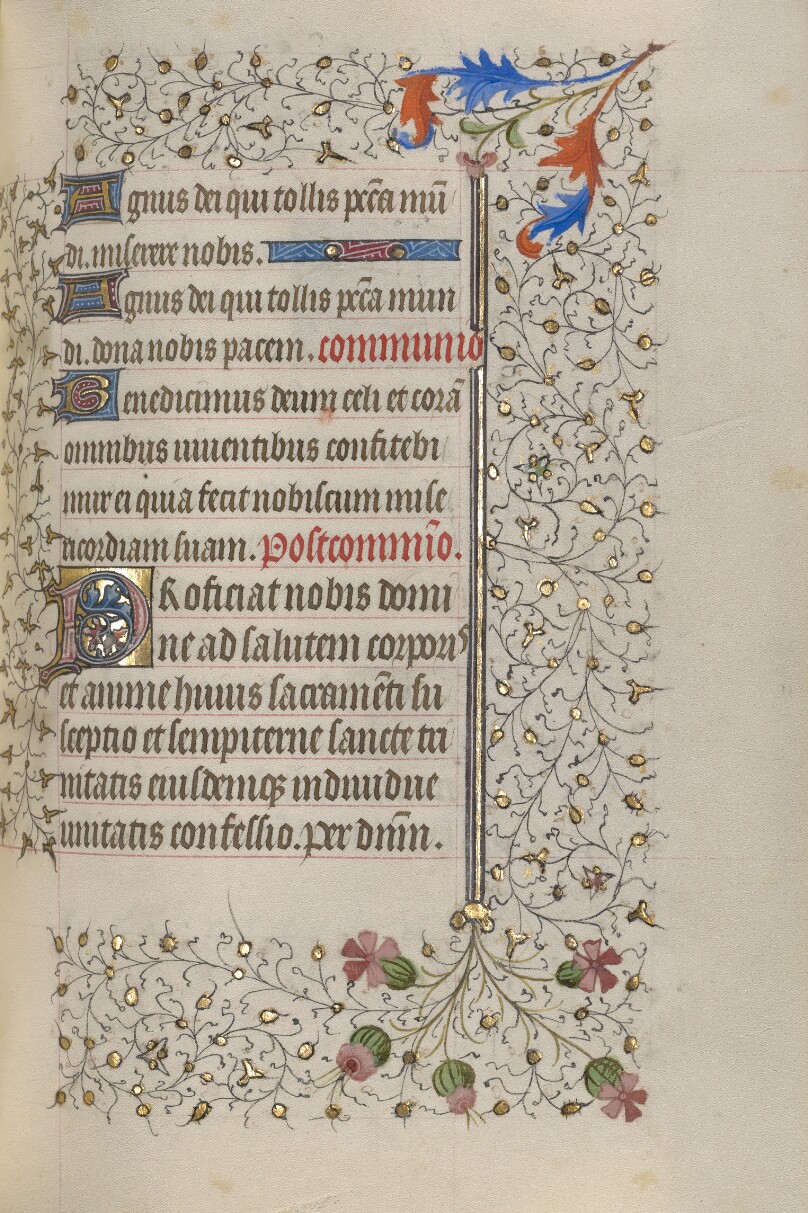 Agnus dei qui tollis pcc̄a mū
di. miserere nobis.
Agnus dei qui tollis pcc̄a mun
di. dona nobis pacem. communio
Benedicimus deum celi et corā
omnibus uiuentibus confitebi
mur ei quia fecit nobiscum mise
ricordiam suam. Postcommūio.
PRoficiat nobis domi
ne ad salutem corporis
et anime huius sacramēti su
sceptio et sempiterne sancte tri
nitatis eiusdemqꝫ indiuidue
unitatis confessio. per dn̄m.